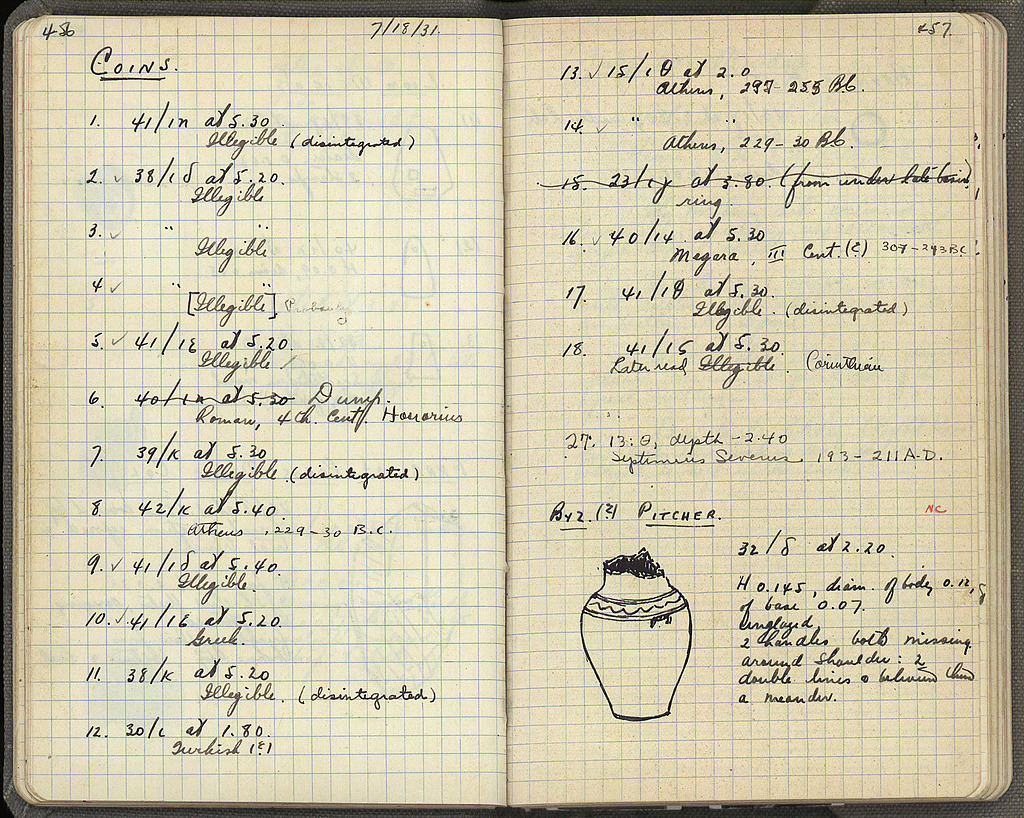 456
7/18/31.
COINS.
1. 41/ιη at 5.30
Illegible (disintegrated)
2. ✓ 38/ιδ at 5.20.
Illegible
3. ✓ " "
Illegible
4 ✓ " "
[Illegible] Probably
5. ✓ 41/ις at 5.20.
Illegible /
6 40/ιη at 5.30 Dump.
Roman, 4th. Cent. Honorius
7. 39/κ at 5.30
Illegible (disintegrated)
8. 42/κ at 5.40
Athens, 229-30 B.C.
9. ✓ 41/ιδ at 5.40.
Illegible.
10. ✓ 41/ις at 5.20.
Greek.
11. 38/κ at 5.20
Illegible. (disintegrated)
12. 30/ι at 1.80.
Turkish (?)
457
13. ✓ 15/ιθ at 2.0
Athens, 297-255 BC.
14. ✓ " "
Athens, 229-30 BC.
15. 23/ιγ at 3.80 (from under late basin
ring.
16. ✓ 40/14 at 5.30
Megara, III Cent. (?) 307-243 B.C.
17. 41/ιθ at 5.30.
Illegible. (disintegrated)
18. 41/15 at 5.30.
Later read Illegible. Corinthian
27. 13:Θ, depth -2.40
Septimius Severus 193-211 A.D.
BYZ. (?) PITCHER.
NC
32/δ at 2.20.
H 0.145, diam. of body 0.12,
of base 0.07.
Unglazed,
2 handles both missing
around shoulder: 2
double lines & between them
a meander.